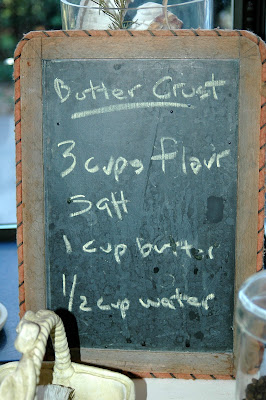 Butter Crust
3 cups flair
Salt
1 cup butter
1/2 cup water